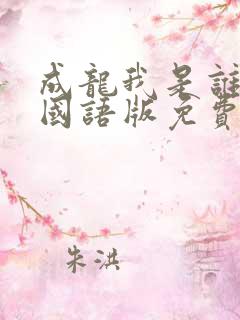 成龍我是誰
國語版免費
朱洪